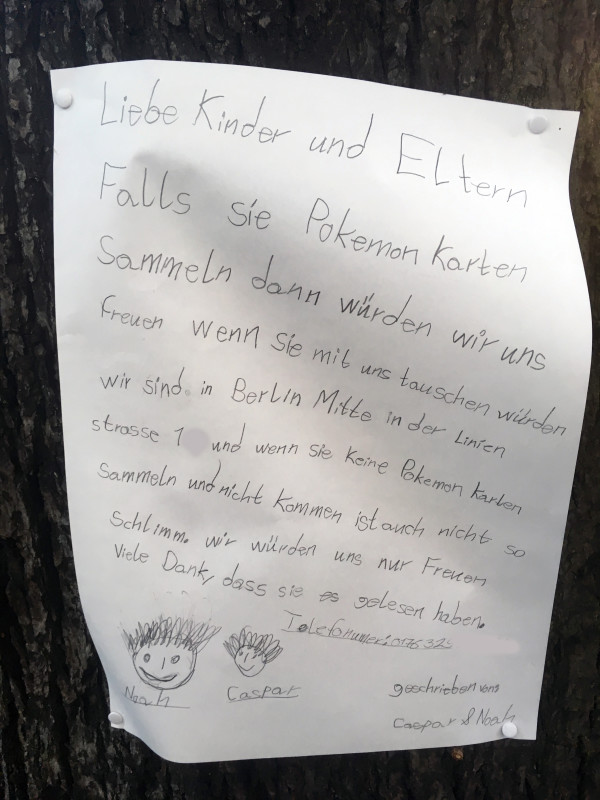 Liebe Kinder und Eltern
Falls sie Pokemon Karten
Sammeln dann würden wir uns
freuen wenn Sie mit uns tauschen würden
wir sind in Berlin Mitte in der Linien
strasse 1 und wenn sie keine Pokemon karten
Sammeln und nicht kommen ist auch nicht so
Schlimm. wir würden uns nur Freuen
Viele Dank, dass sie es gelesen haben.
Telefonumer: 0176325
Noah Caspar
geschrieben vom
Caspar & Noah